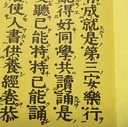 成就是第三安樂行
得好同學共讀誦是
聽已能持持已能誦
使人書供養經卷恭